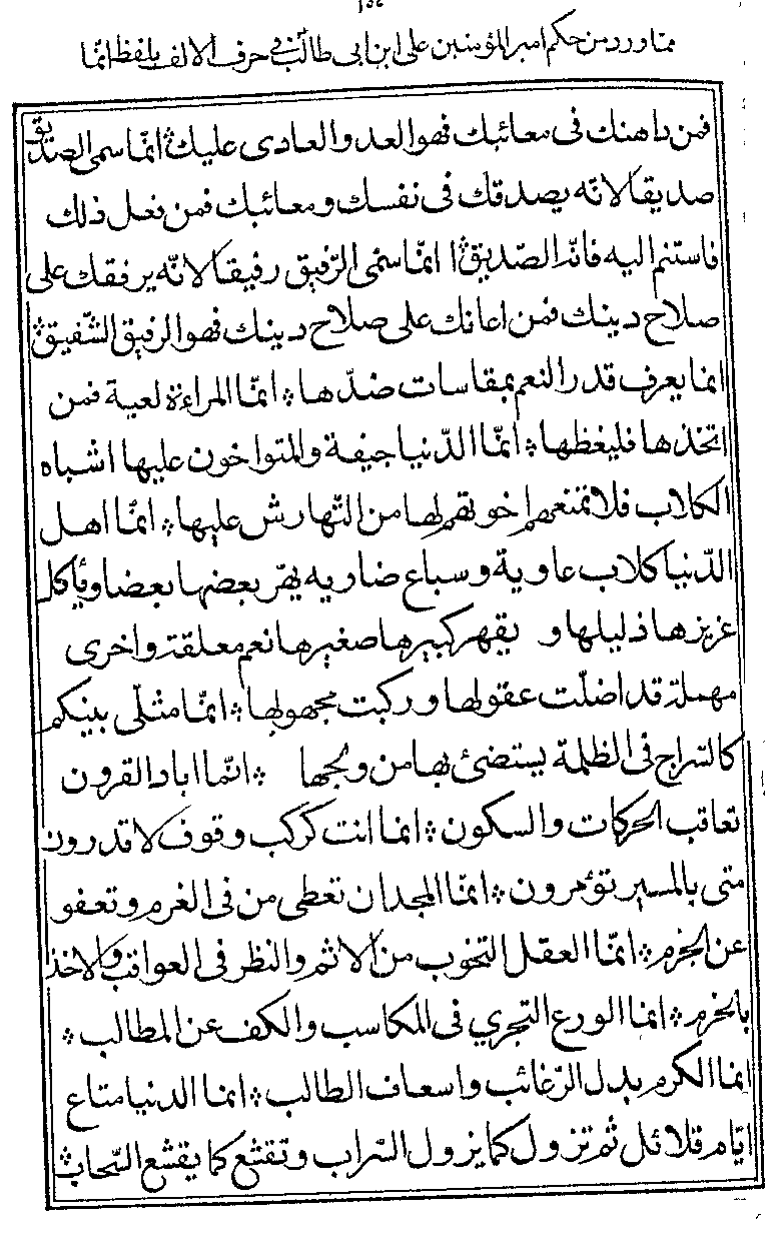 ١٥٥
ممّا ورد من حكم امير المؤمنين على ابن ابى طالب فى حرف الالف بلفظ انّما
فمن داهنك فى معائبك فهو العدو العادى عليك؞ انّما سمى الصديق
صديقا لانّه يصدقك فى نفسك ومعائبك فمن فعل ذلك
فاستنم اليه فانّه الصّديق؞ انّما سمّى الرّفيق رفيقا لانّه يرفقك على
صلاح دينك فمن اعانك على صلاح دينك فهو الرفيق الشّفيق؞
انما يعرف قدر النعم بمقاسات ضدّها؞ انّما المراءة لعبة فمن
اتخذها فليغظها؞ انّما الدّنيا جيفة والمتواخون عليها اشباه
الكلاب فلا تمنعهم اخوتهم لها من التّهارش عليها؞ انّما اهل
الدّنيا كلاب عاوية وسباع ضاريه يهرّ بعضها بعضا ويأكل
عزيزها ذليلها و يقهر كبيرها صغيرها نعم معلقة واخرى
مهملة قد اضلّت عقولها وركبت مجهولها؞ انّما مثلى بينكم
كالسّراج فى الظلمة يستضئ بها من ولجها ؞ انّما اباد القرون
تعاقب الحركات والسكون؞ انما انت كركب وقوف لا قدرون
متى بالمسير تؤمرون؞ انّما المجد ان تعطى من فى الغرم وتعفو
عن الجرم؞ انّما العقل التجوب من الاثم والنظر فى العواقب والاخذ
بالحزم؞ انما الورع التجرى فى المكاسب والكف عن المطالب؞
انما الكرم بدل الرّغائب واسعاف الطالب؞ انما الدنيا متاع
ايّام قلائل ثم تزول كما يزول السّراب وتقشع كما يقشع السّحاب؞